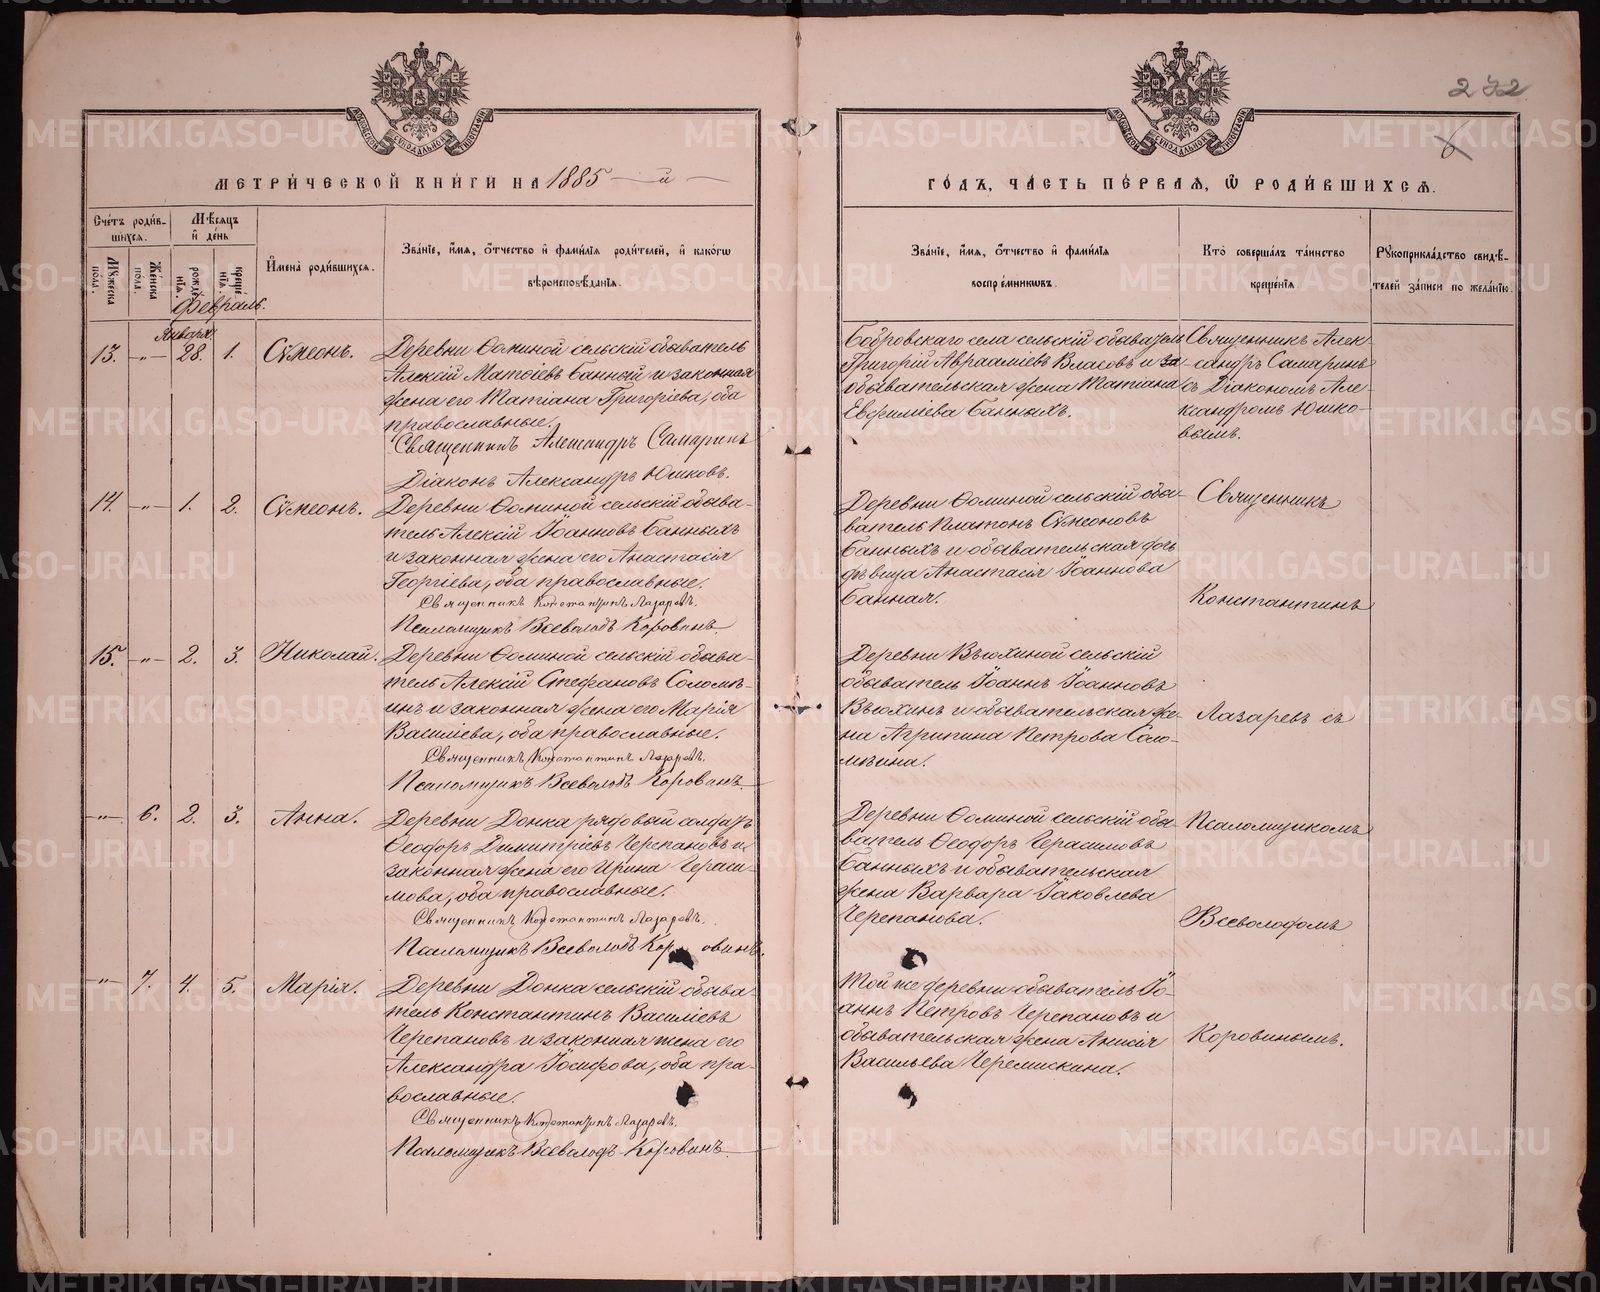 272
6
МОСКОВСКОЙ СѴНОДАЛЬНОЙ ТИПОГРАФІИ
МОСКОВСКОЙ СѴНОДАЛЬНОЙ ТИПОГРАФІИ
МЕТРИ́ЧЕСКОЙ КНИ́ГИ НА 1885 — й —
ГО́ДЪ, ЧА́СТЬ ПЕ́РВАЯ, Ѽ РОДИ́ВШИХСЯ.
Сче́тъ роди́в-
шихся.
Мꙋ́жеска пола.
Же́нска пола.
Мѣ́сяцъ
и̂ де́нь
рожде́
нїѧ.
креще́
нїѧ.
И̂мена̀ роди́вшихся.
Зва́нїе, и̂́мя, ѻ̂́тчество и̂ фами́лїя роди́телей, и̂ како́гѡ
вѣроисповѣ́данїя.
Зва́нїе, и̂́мя, ѻ̂́тчество и̂ фами́лїя
воспрїе́мникѡвъ.
Кто̀ соверша́лъ та́инство
креще́нїя
Рꙋкоприкла́дство свидѣ́-
телей за́писи по жела́нїю.
Февраль.
Января
13. -"- 28. 1. Сѵмеонъ.
Деревни Ѳоминой сельскій обыватель
Алексій Матѳіевъ Банной и законная
жена его Татіана Григоріева, оба
православные.
Священникъ Александръ Самаринъ
Діаконъ Александръ Юшковъ.
Бобровскаго села сельскій обыватель
Григорій Авраамiевъ Власовъ и
обывательская жена Татіана
Евфиміева Банныхъ.
Священникъ Алек-
сандръ Самаринъ
съ Діакономъ Але-
ксандромъ Юшко-
вымъ.
14. -"- 1. 2. Сѵмеонъ.
Деревни Ѳоминой сельскій обыва-
тель Алексій Іоанновъ Банныхъ
и законная жена его Анастасія
Георгіева, оба православные.
Священникъ Константинъ Лазаревъ.
Псаломщикъ Всеволодъ Коровинъ.
Деревни Ѳоминой сельскій обы-
ватель Платонъ Сѵмеоновъ
Банныхъ и обывательская дочь
дѣвица Анастасія Іоаннова
Банная.
Священникъ
Константинъ
15. -"- 2. 3. Николай.
Деревни Ѳоминой сельскій обыва-
тель Алексій Стефановъ Соломѣ-
инъ и законная жена его Марія
Василіева, оба православные.
Священникъ Константинъ Лазаревъ.
Псаломщикъ Всеволодъ Коровинъ.
Деревни Вьюхиной сельскій
обыватель Іоаннъ Іоанновъ
Вьюхинъ и обывательская же-
на Агрипина Петрова Соло-
мѣина.
Лазаревъ съ
-"- 6. 2. 3. Анна.
Деревни Донка рядовый солдатъ
Ѳеодоръ Димитріевъ Черепановъ и
законная жена его Ирина Гераси-
мова, оба православные.
Священникъ Константинъ Лазаревъ.
Псаломщикъ Всеволодъ Коровинъ.
Деревни Ѳоминой сельскій обы-
ватель Ѳеодоръ Герасимовъ
Банныхъ и обывательская
жена Варвара Іаковлева
Черепанова.
Псаломщикомъ
Всеволодомъ
-"- 7. 4. 5. Марія.
Деревни Донка сельскій обыва-
тель Константинъ Василіевъ
Черепановъ и законная жена его
Александра Іосифова, оба пра-
вославные.
Священникъ Константинъ Лазаревъ.
Псаломщикъ Всеволодъ Коровинъ
Той же деревни обыватель Іо-
аннъ Петровъ Черепановъ и
обывательская жена Анисія
Васильева Черемискина.
Коровинымъ.
METRIKI.GASO-URAL.RU